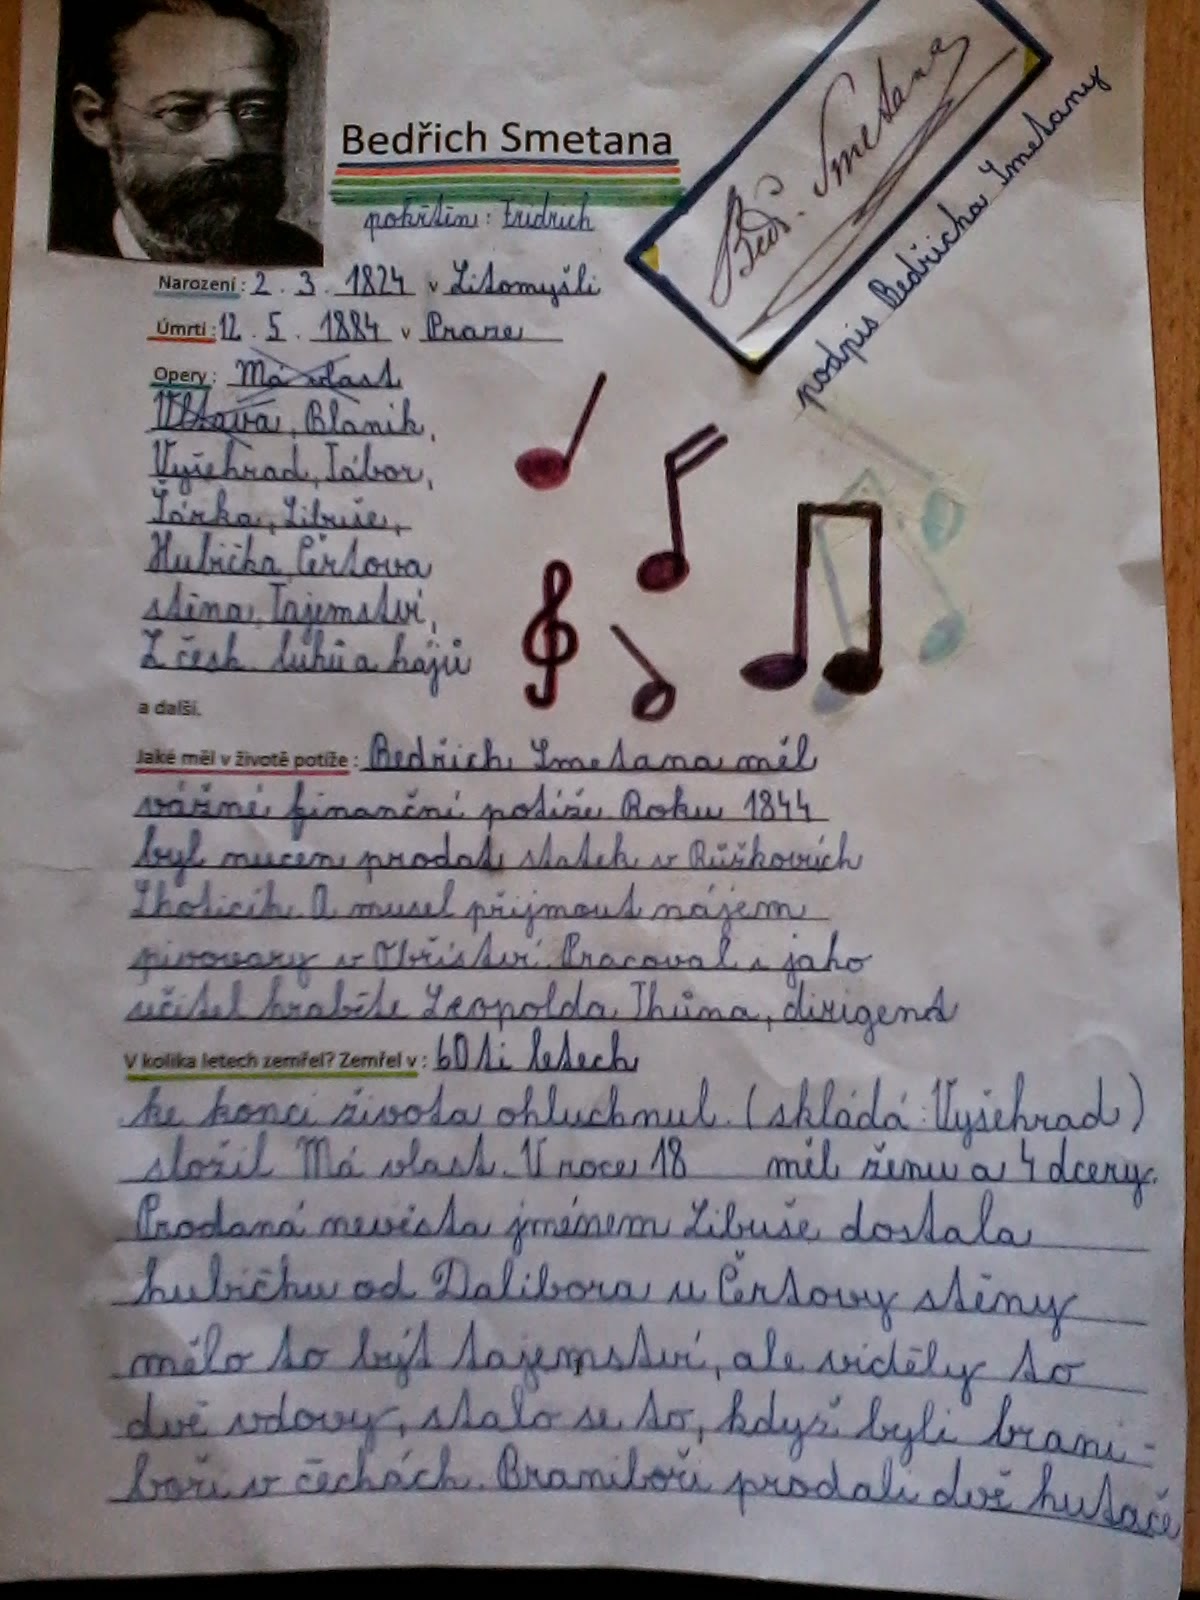 Bedřich Smetana
pokřtěn: Fridrich
Bed. Smetana
podpis Bedřicha Smetany
Narození: 2. 3. 1824 v Litomyšli
Úmrtí: 12. 5. 1884 v Praze
Opery: Má vlast
Vltava, Blaník,
Vyšehrad, Tábor,
Šárka, Libuše,
Hubička, Čertova
stěna, Tajemství,
Z česk. luhů a hájů
a další.
Jaké měl v životě potíže: Bedřich Smetana měl
vážné finanční potíže. Roku 1844
byl nucen prodat statek v Růžkových
Lhoticích. A musel přijmout nájem
pivovary v Obříství. Pracoval i jako
učitel hraběte Leopolda Thúna, dirigent
V kolika letech zemřel? Zemřel v: 60ti letech
ke konci života ohluchnul. (skládá: Vyšehrad)
složil Má vlast. V roce 18 měl ženu a 4 dcery.
Prodaná nevěsta jménem Libuše dostala
hubičku od Dalibora u Čertovy stěny
mělo to být tajemství, ale viděly to
dvě vdovy, stalo se to, když byli brani-
boři v čechách. Braniboři prodali dvě